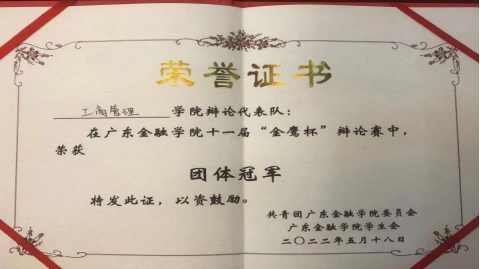 荣誉证书
工商管理 学院辩论代表队：
在广东金融学院十一届“金鹰杯”辩论赛中，
荣获
团体冠军
特发此证，以资鼓励。
共青团广东金融学院委员会
广东金融学院学生会
二〇二二年五月十八日